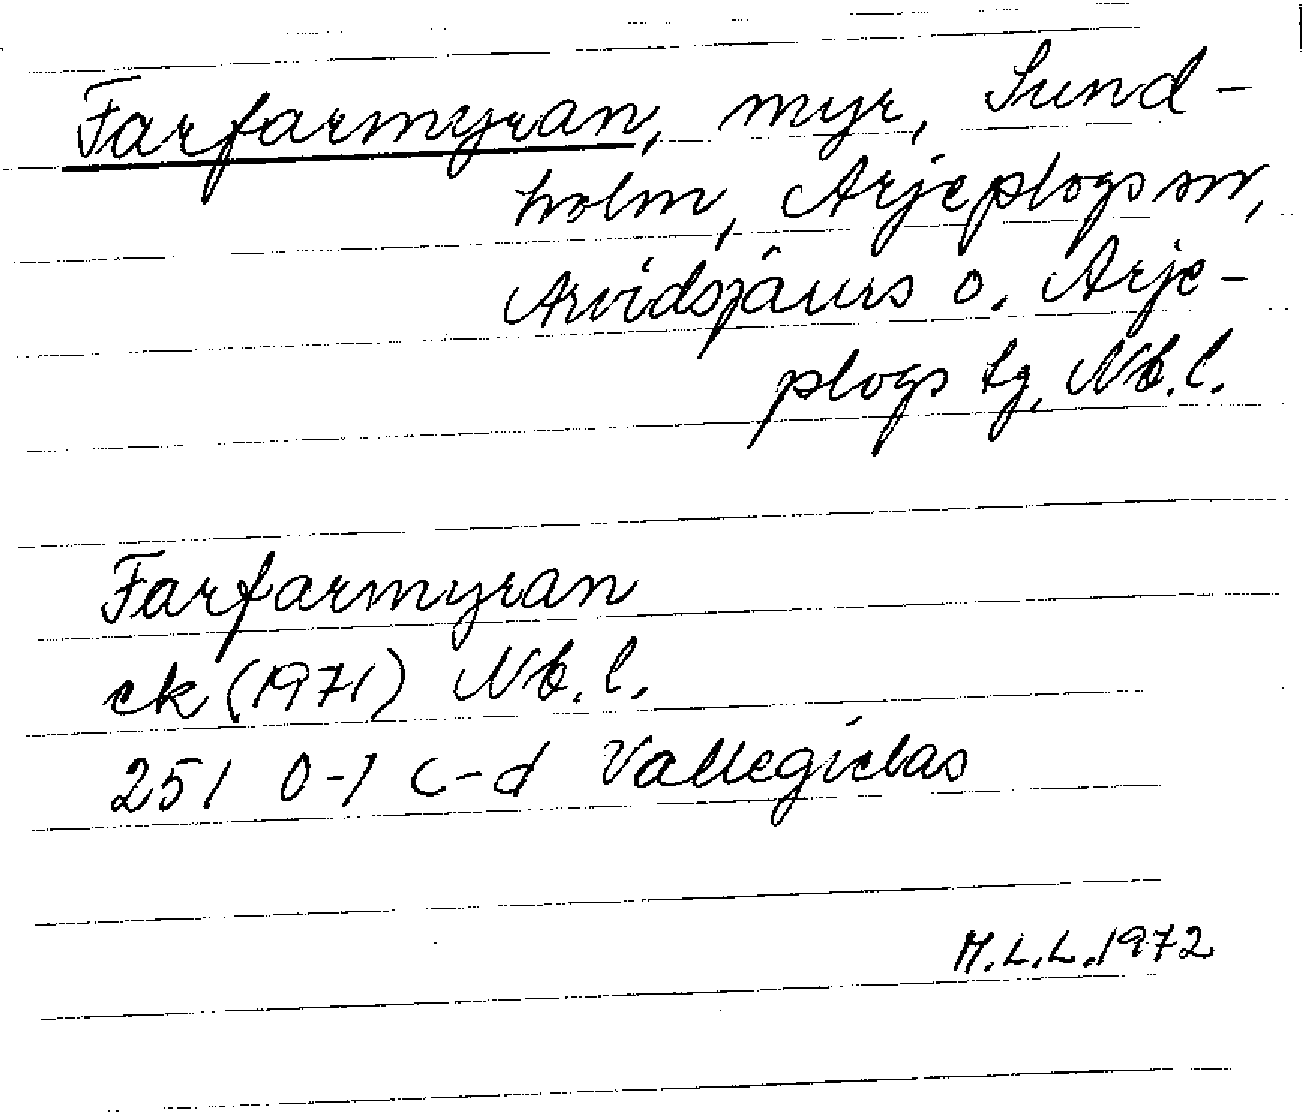 Farfarmyran, myr, Sund-
holm, Arjeplogs sn,
Arvidsjaurs o. Arje-
plogs tg, Nb.l.
Farfarmyran
ek (1971) Nb.l.
251 0-1 c-d Vallegielas
M.L.L. 1972